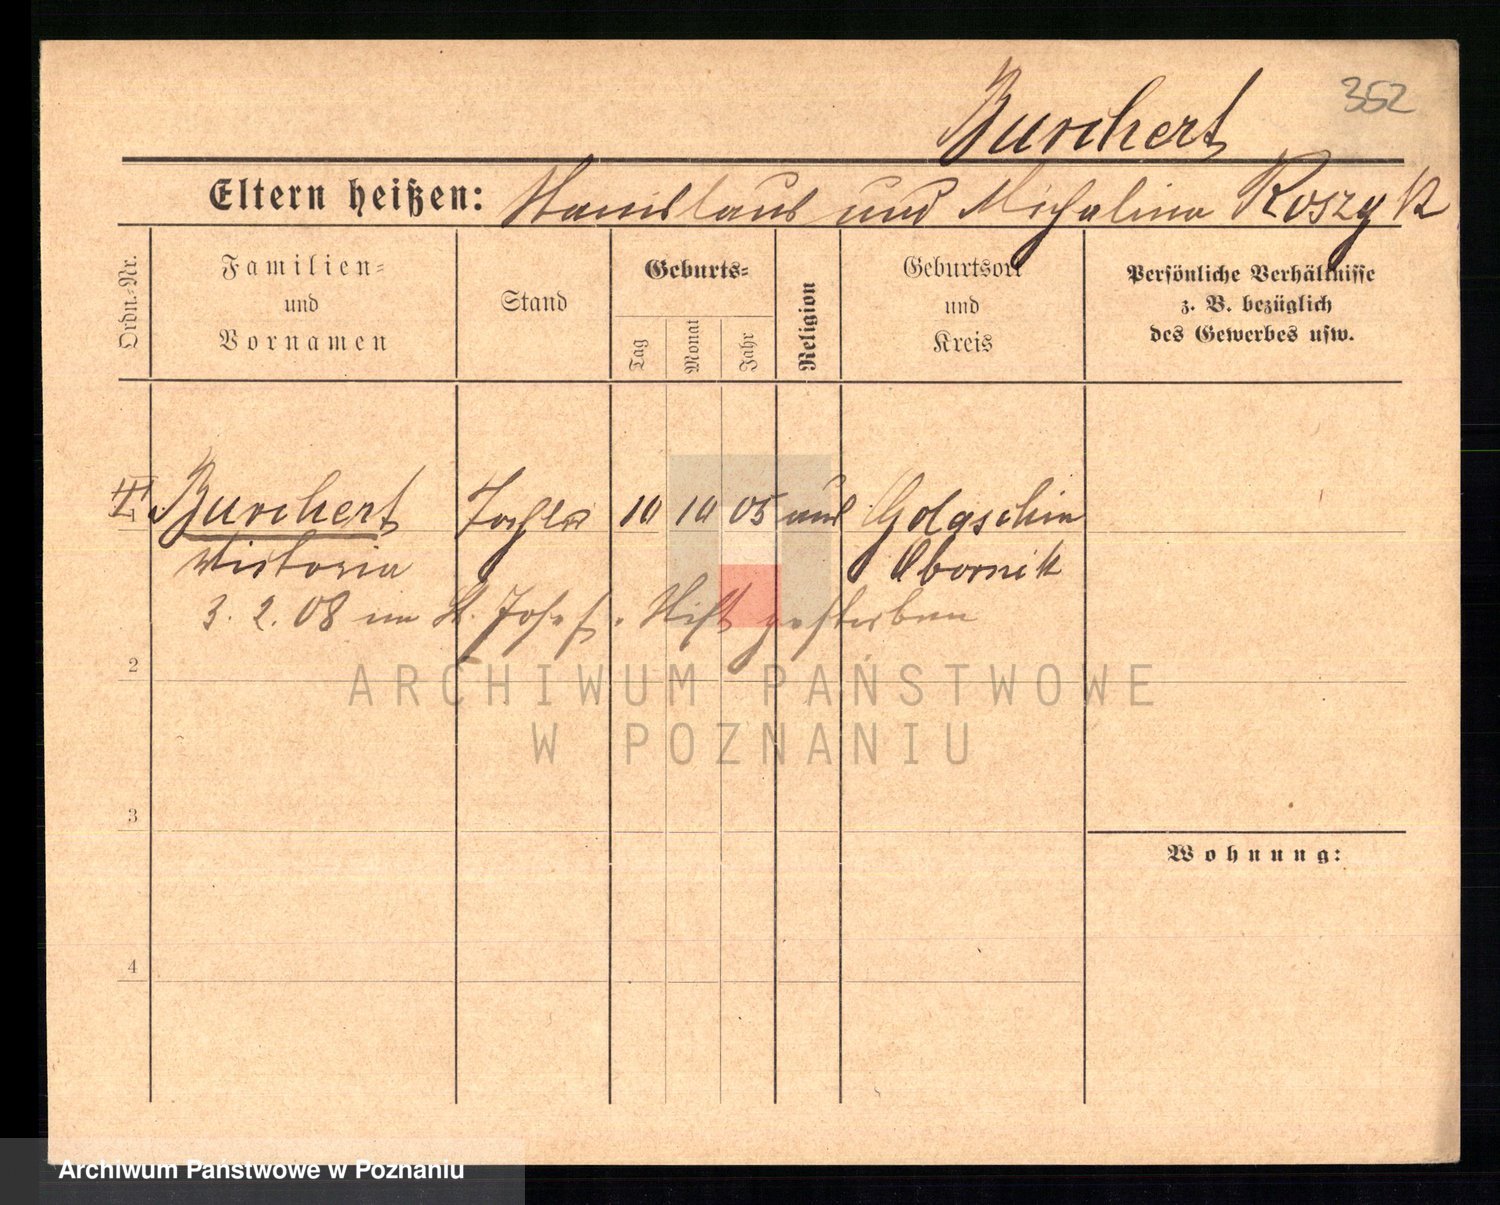 352
Burchert
Eltern heißen: Stanislaus und Michalina Koszyk
Ordn.-Nr.
Familien=
und
Vornamen
Stand
Geburts=
Tag
Monat
Jahr
Religion
Geburtsort
und
Kreis
Persönliche Verhältnisse
z. B. bezüglich
des Gewerbes usw.
Burchert Tochter 10 10 05 Golaschin
Victoria Obornik
3. 2. 08 im St. Josef. Stift gestorben
2
3
4
Wohnung:
ARCHIWUM PAŃSTWOWE
W POZNANIU
Archiwum Państwowe w Poznaniu